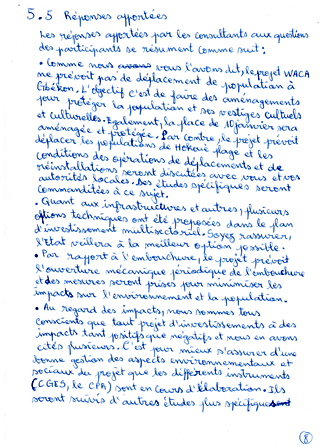 5.5 Réponses apportées
Les réponses apportées par les consultants aux questions
des participants se résument comme suit :
• Comme nous vous l'avons dit, le projet WACA
ne prévoit pas de déplacement de population à
Gbékon. L'objectif c'est de faire des aménagements
pour protéger la population et ses vestiges cultuels
et culturelles. Egalement, la place de 10 janvier sera
aménagée et protégée. Par contre, le projet prévoit
déplacer les populations de Hokoué plage et les
conditions des opérations de déplacements et de
réinstallations seront discutées avec vous et vos
autorités locales. Des études spécifiques seront
commanditées à ce sujet.
• Quant aux infrastructures et autres, plusieurs
options techniques ont été proposées dans le plan
d'investissement multisectoriel. Soyez rassurer,
l'Etat veillera à la meilleur option possible.
• Par rapport à l'embouchure, le projet prévoit
l'ouverture mécanique périodique de l'embouchure
et des mesures seront prises pour minimiser les
impacts sur l'environnement et la population.
• Au regard des impacts, nous sommes tous
conscients que tout projet d'investissements à des
impacts tant positifs que négatifs et nous en avons
cités plusieurs. C'est pour mieux s'assurer d'une
bonne gestion des aspects environnementaux et
sociaux du projet que les différents instruments
(CGES, le CPR) sont en cours d'élaboration. Ils
seront suivis d'autres études plus spécifiques
8